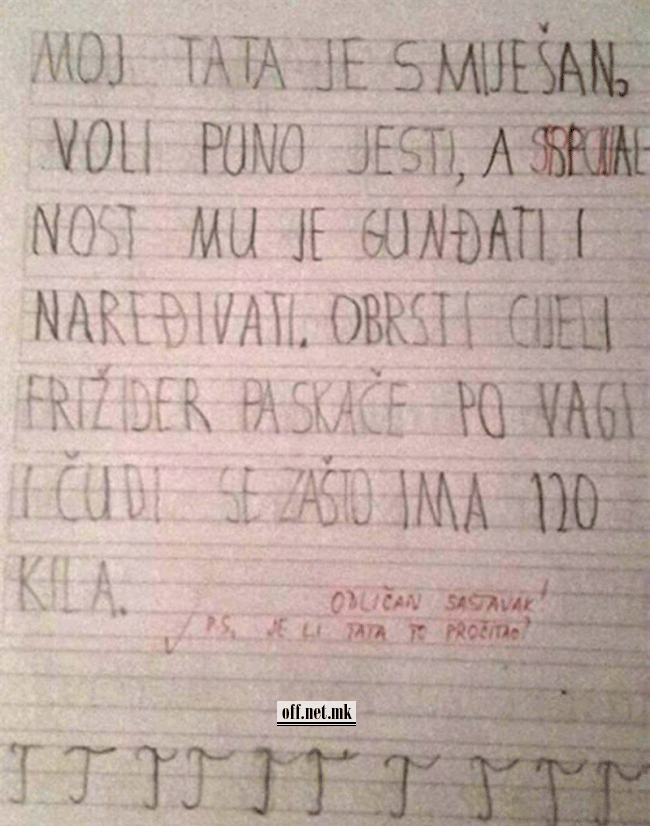 MOJ TATA JE SMIJEŠAN,
VOLI PUNO JESTI, A SPECIJAL
NOST MU JE GUNĐATI I
NAREĐIVATI. OBRSTI CIJELI
FRIŽIDER PA SKAČE PO VAGI
I ČUDI SE ZAŠTO IMA 120
KILA.
ODLIČAN SASTAVAK!
P.S. JE LI TATA TO PROČITAO?
off.net.mk
T T T T T T T T T T